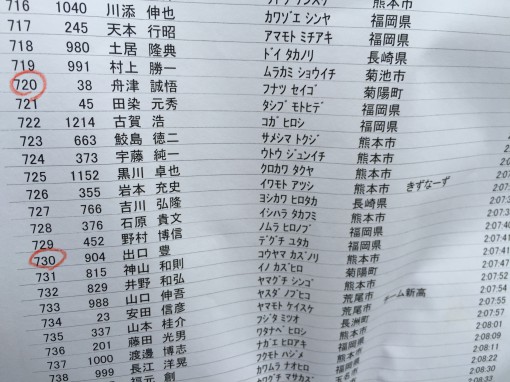 716 1040 川添 伸也 カワゾエ シンヤ 熊本市
717 245 天本 行昭 アマモト ミチアキ 福岡県
718 980 土居 隆典 ドイ タカノリ 長崎県
719 991 村上 勝一 ムラカミ ショウイチ 菊池市
720 38 舟津 誠悟 フナツ セイゴ 菊陽町
721 45 田染 元秀 タシブ モトヒデ 福岡県
722 1214 古賀 浩 コガ ヒロシ 福岡県
723 663 鮫島 徳二 サメシマ トクジ 熊本市
724 373 宇藤 純一 ウトウ ジュンイチ 熊本市
725 1152 黒川 卓也 クロカワ タクヤ 福岡県
726 355 岩本 充史 イワモト アツシ 熊本市 きずなーず
727 766 吉川 弘隆 ヨシカワ ヒロタカ 長崎県
728 376 石原 貴文 イシハラ タカフミ 熊本市
729 452 野村 博信 ノムラ ヒロノブ 福岡県
730 904 出口 豊 デグチ ユタカ 福岡県 2:07:41
731 815 神山 和則 コウヤマ カズノリ 熊本市 2:07:42
732 829 井野 和弘 イノ カズヒロ 菊陽町 2:07:47
733 988 山口 伸吾 ヤマグチ シンゴ 熊本市 2:07:54
734 23 安田 信彦 ヤスダ ノブヒコ 荒尾市 チーム新高 2:07:55
735 337 山本 桂介 ヤマモト ケイスケ 荒尾市 2:07:57
736 201 藤田 光男 フジタ ミツオ 長洲町 2:08:01
737 1000 渡邊 博志 ワタナベ ヒロシ 熊本市 2:08:09
738 999 長江 洋晃 ナガエ ヒロアキ 福岡県 2:08:11
福元 創 フクモト ハジメ